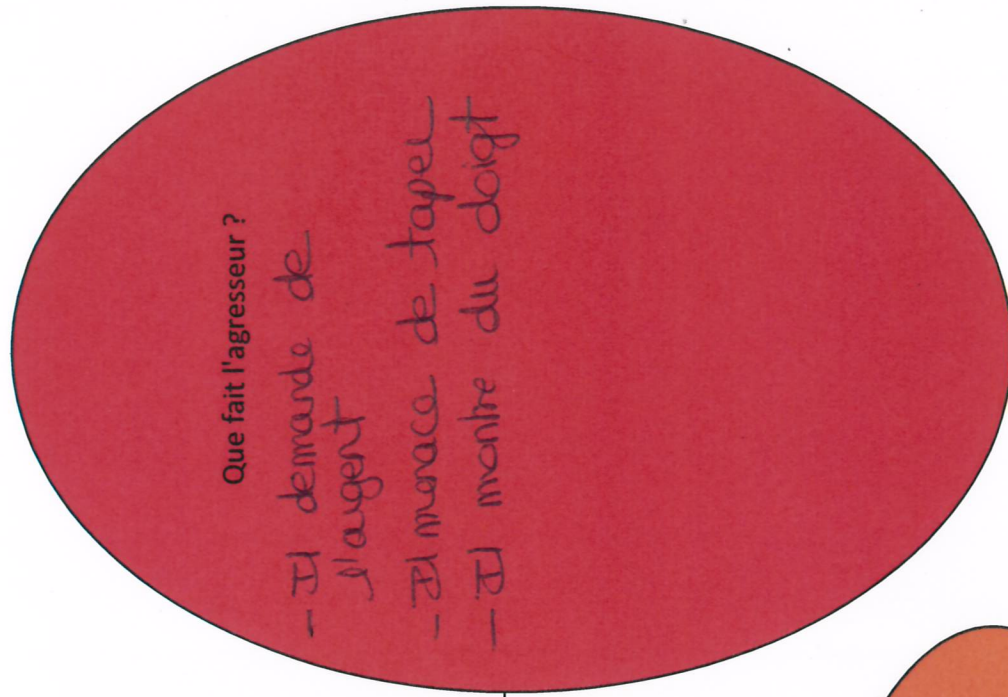 Que fait l'agresseur ?
- Il demande de
l'argent
- Il menace de taper
- Il montre du doigt